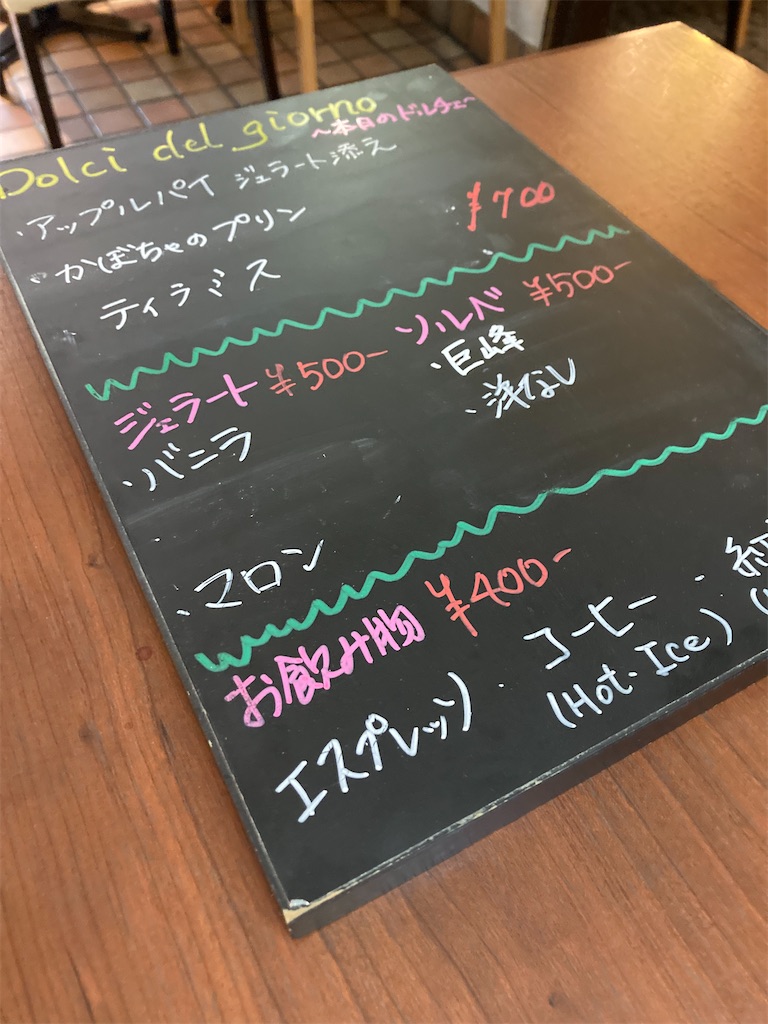 Dolci del giorno
～本日のドルチェ～
・アップルパイ ジェラート添え
・かぼちゃのプリン
¥700
ティラミス
ジェラート ¥500-
・バニラ
・マロン
ソルベ ¥500-
・巨峰
・洋なし
お飲み物 ¥400-
エスプレッソ・コーヒー・紅
(Hot・Ice)